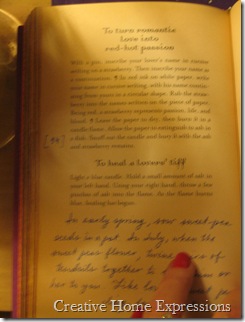 To turn romantic
love into
red-hot passion
With a pen, inscribe your lover's name in cursive
writing on a strawberry. Then inscribe your name as
a continuation. In red ink on white paper, write
your name in cursive writing, with his name continu-
ing from yours in a circular shape. Rub the straw-
berry into the names written on the piece of paper.
Being red, a strawberry represents passion, life, and
blood. Leave the paper to dry, then burn it in a
candle flame. Allow the paper to extinguish to ash in
a dish. Snuff out the candle and bury it with the ash
and strawberry remains.
[54]
To heal a lovers' tiff
Light a blue candle. Hold a small amount of salt in
your left hand. Using your right hand, throw a few
pinches of salt into the flame. As the flame burns
blue, healing has begun.
In early spring, sow sweet-pea
seeds in a pot. In July, when the
sweet peas flower, of
tendrils together to
to you.
Creative Home Expressions